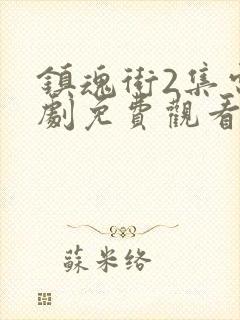 鎮魂街2集電
劇免費觀看
蘇米络